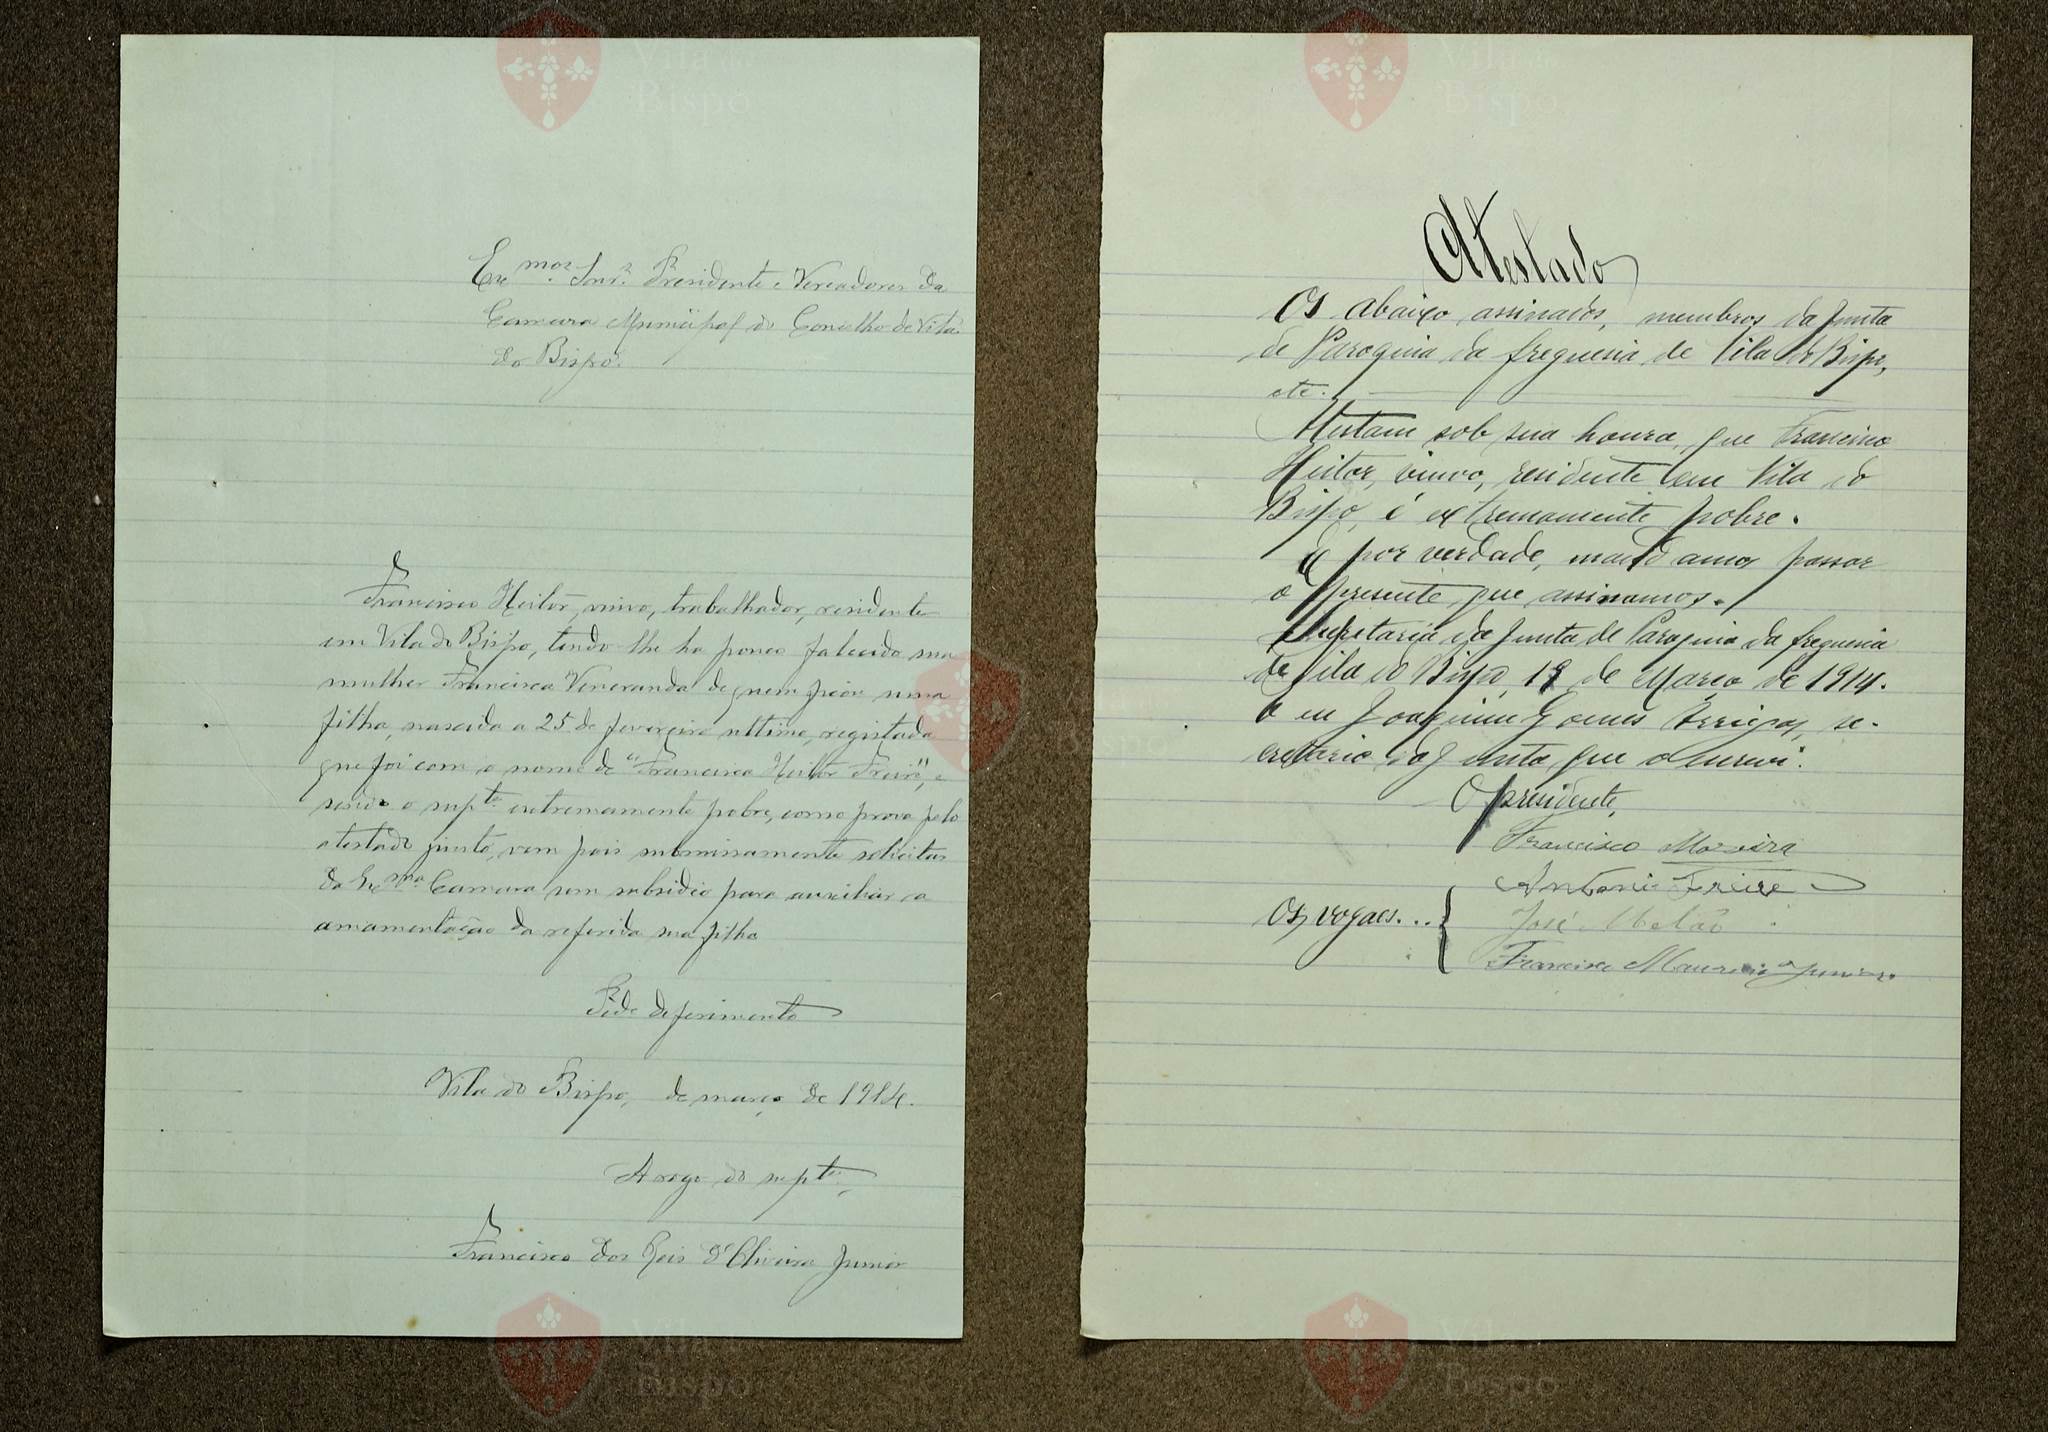 Exmos. Snrs. Presidente e Vereadores da
Camara Municipal do Concelho de Vila
do Bispo.
Francisco Heitor, viuvo, trabalhador, residente
em Vila do Bispo, tendo-lhe ha pouco falecido sua
mulher Francisca Veneranda de quem ficou uma
filha, nascida a 25 de fevereiro ultimo, registada
que foi com o nome de "Francisca Heitor Freire", e
sendo o supte. extremamente pobre, como prova pelo
atestado junto, vem pois submissamente solicitar
da Exma. Camara um subsidio para auxiliar a
amamentação da referida sua filha
Pede deferimento
Vila do Bispo, de março de 1914.
A rogo do supte.,
Francisco dos Reis d'Oliveira Junior
Atestado
Os abaixo assinados, membros da Junta
de Paroquia da freguesia de Vila do Bispo,
etc.
Atestam sob sua honra, que Francisco
Heitor, viuvo, residente em Vila do
Bispo, é extremamente pobre.
E por verdade, mandamos passar
o presente que assinamos.
Secretaria da Junta de Paroquia da freguesia
de Vila do Bispo, de Março de 1914.
E eu Joaquim Gomes, se-
cretario da Junta que o escrevi.
O presidente,
Francisco Moreira
Antonio Freire
Os vogaes... { José
Francisco Junior
Vila do
Bispo